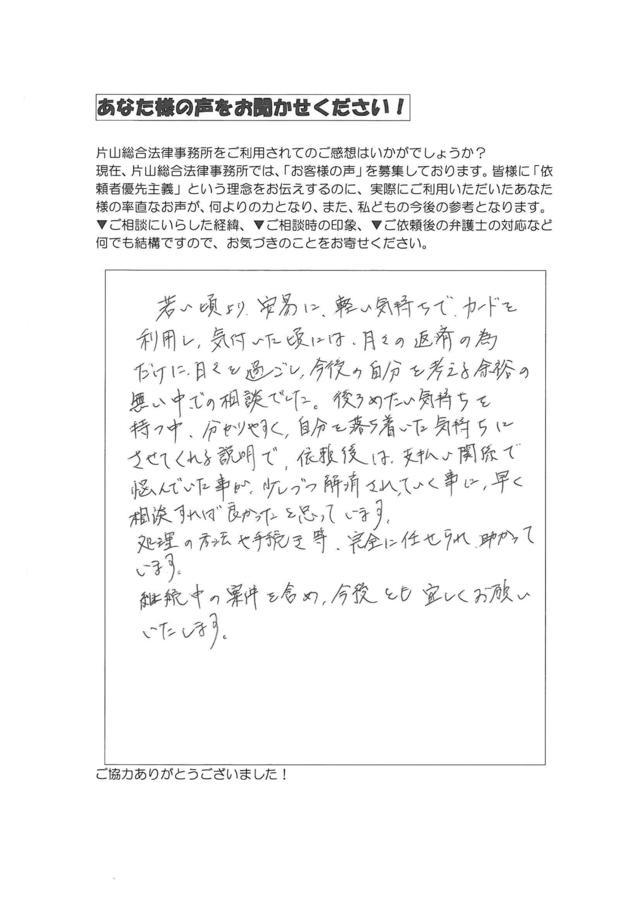 あなた様の声をお聞かせください！
片山総合法律事務所をご利用されてのご感想はいかがでしょうか？
現在、片山総合法律事務所では、「お客様の声」を募集しております。皆様に「依
頼者優先主義」という理念をお伝えするのに、実際にご利用いただいたあなた
様の率直なお声が、何よりの力となり、また、私どもの今後の参考となります。
▼ご相談にいらした経緯、▼ご相談時の印象、▼ご依頼後の弁護士の対応など
何でも結構ですので、お気づきのことをお寄せください。
若い頃より、安易に、軽い気持ちで、カードを
利用し、気付いた頃には、月々の返済の為
だけに、日々を過ごし、今後の自分を考える余裕の
無い中での相談でした。後ろめたい気持ちを
持つ中、分かりやすく、自分を落ち着いた気持ちに
させてくれる説明で、依頼後は、支払い関係で
悩んでいた事が、少しづつ解消されていく事に、早く
相談すれば良かったと思っています。
処理の方法や手続き等、完全に任せられ、助かって
います。
継続中の案件を含め、今後とも宜しくお願い
いたします。
ご協力ありがとうございました！